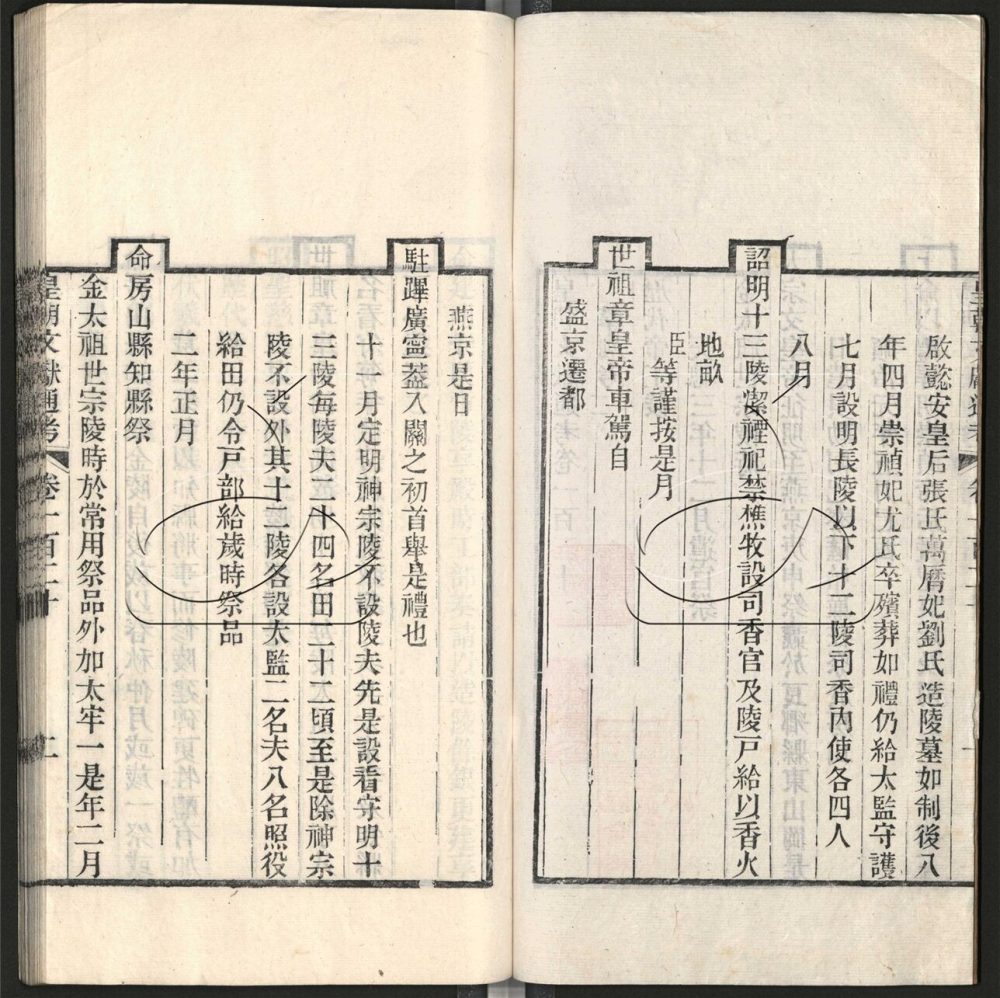 啟懿安皇后張氏萬曆妃劉氏造陵墓如制後八
年四月崇禎妃尤氏卒殯葬如禮仍給太監守護
七月設明長陵以下十二陵司香內使各四人
八月
詔明十三陵潔禋祀禁樵牧設司香官及陵戶給以香火
地畝
臣等謹按是月
世祖章皇帝車駕自
盛京遷都
燕京是日
駐蹕廣寧葢入關之初首舉是禮也
十一月定明神宗陵不設陵夫先是設看守明十
三陵每陵夫二十四名田二十二頃至是除神宗
陵不設外其十二陵各設太監二名夫八名照役
給田仍令戶部給歲時祭品
二年正月
命房山縣知縣祭
金太祖世宗陵時於常用祭品外加太牢一是年二月
皇朝文獻通考 卷一百二十